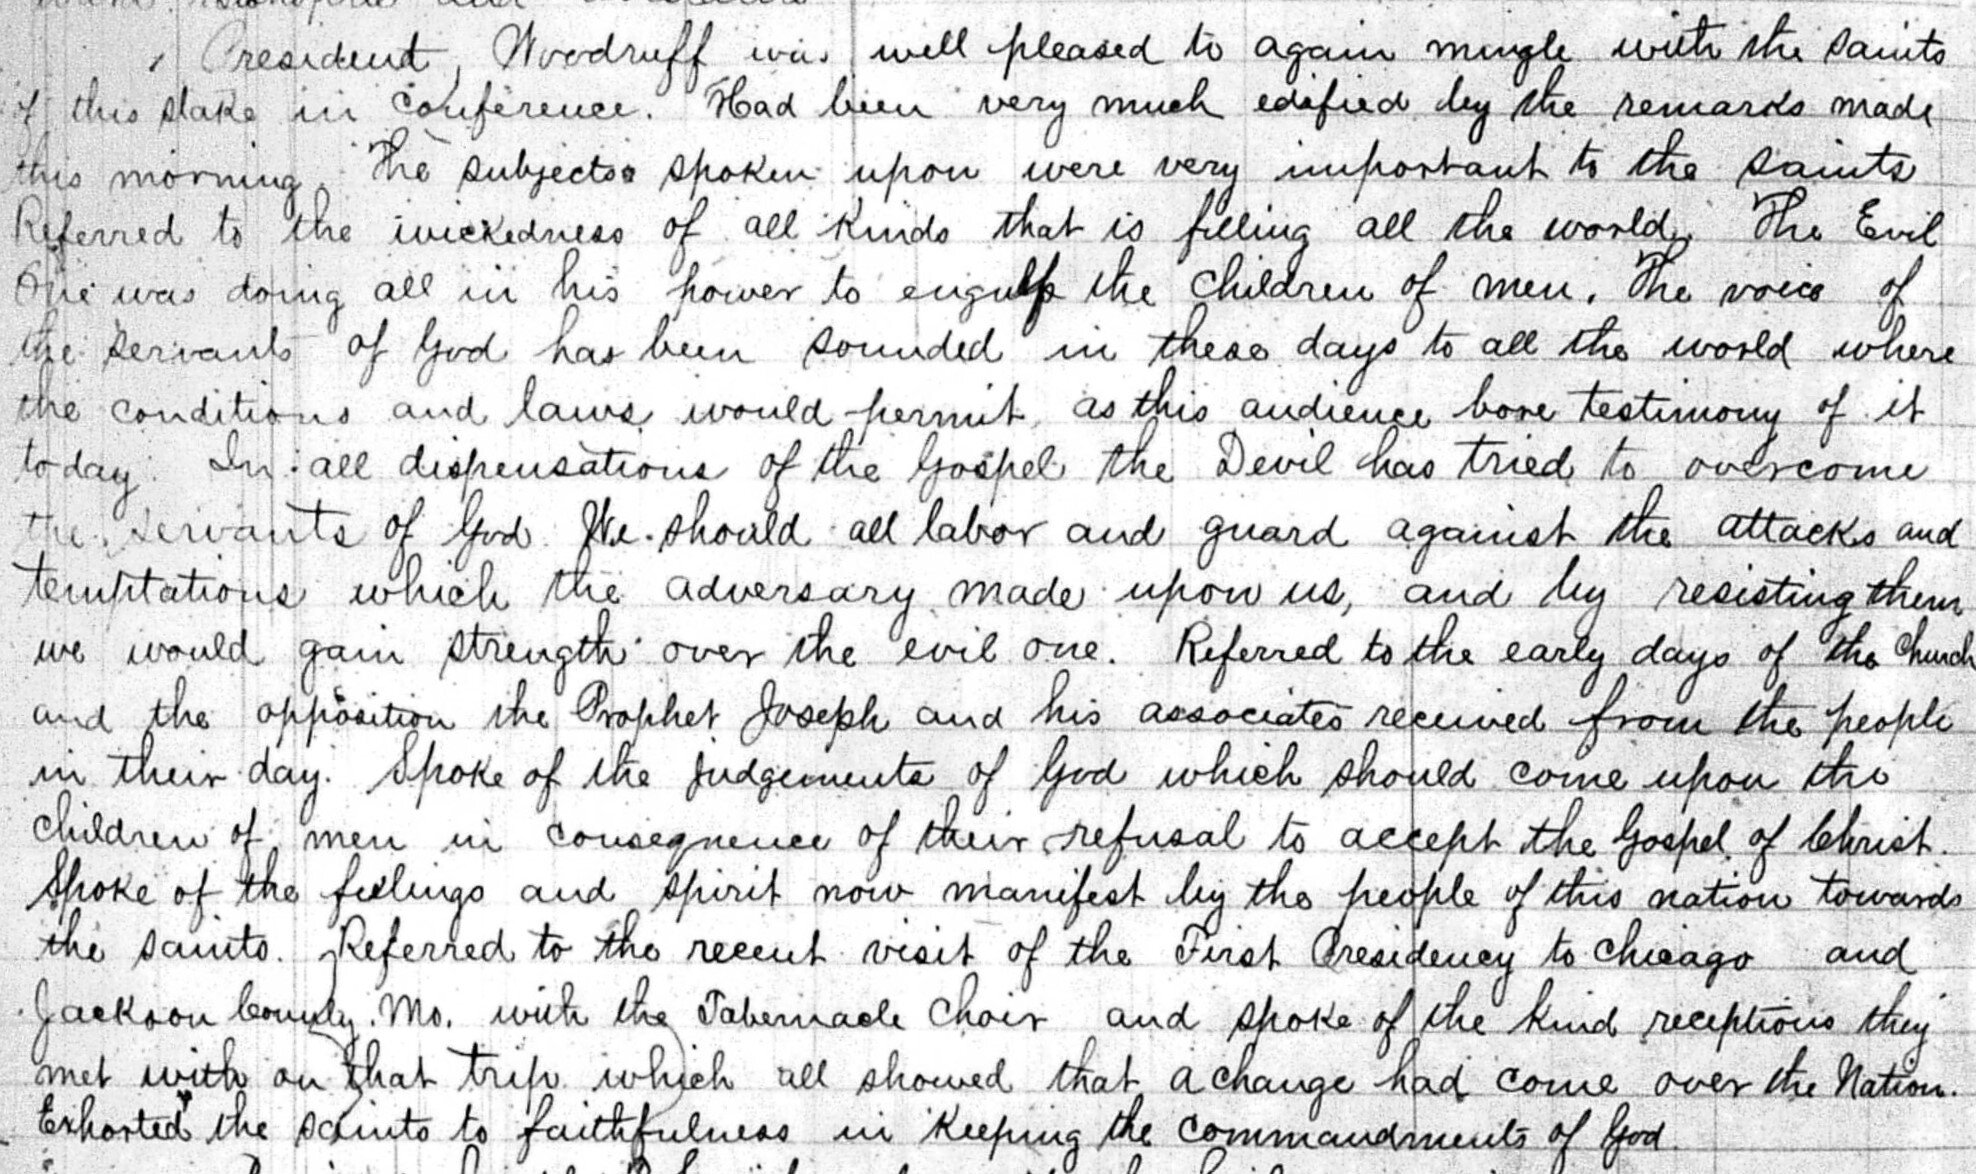 President, Woodruff was well pleased to again mingle with the saints
of this stake in conference. Had been very much edified by the remarks made
this morning. The subjects spoken upon were very important to the saints
Referred to the wickedness of all kinds that is filling all the world. The Evil
One was doing all in his power to engulf the children of men. The voice of
the servants of God has been sounded in these days to all the world where
the conditions and laws would permit, as this audience bore testimony of it
today. In all dispensations of the Gospel the Devil has tried to overcome
the servants of God. We should all labor and guard against the attacks and
temptations which the adversary made upon us, and by resisting them
we would gain strength over the evil one. Referred to the early days of the Church
and the opposition the Prophet Joseph and his associates received from the people
in their day. Spoke of the judgements of God which should come upon the
children of men in consequence of their refusal to accept the Gospel of Christ.
Spoke of the feelings and spirit now manifest by the people of this nation towards
the saints. Referred to the recent visit of the First Presidency to Chicago and
Jackson County. Mo. with the Tabernacle Choir and spoke of the kind receptions they
met with on that trip which all showed that a change had come over the Nation.
Exhorted the saints to faithfulness in keeping the commandments of God.